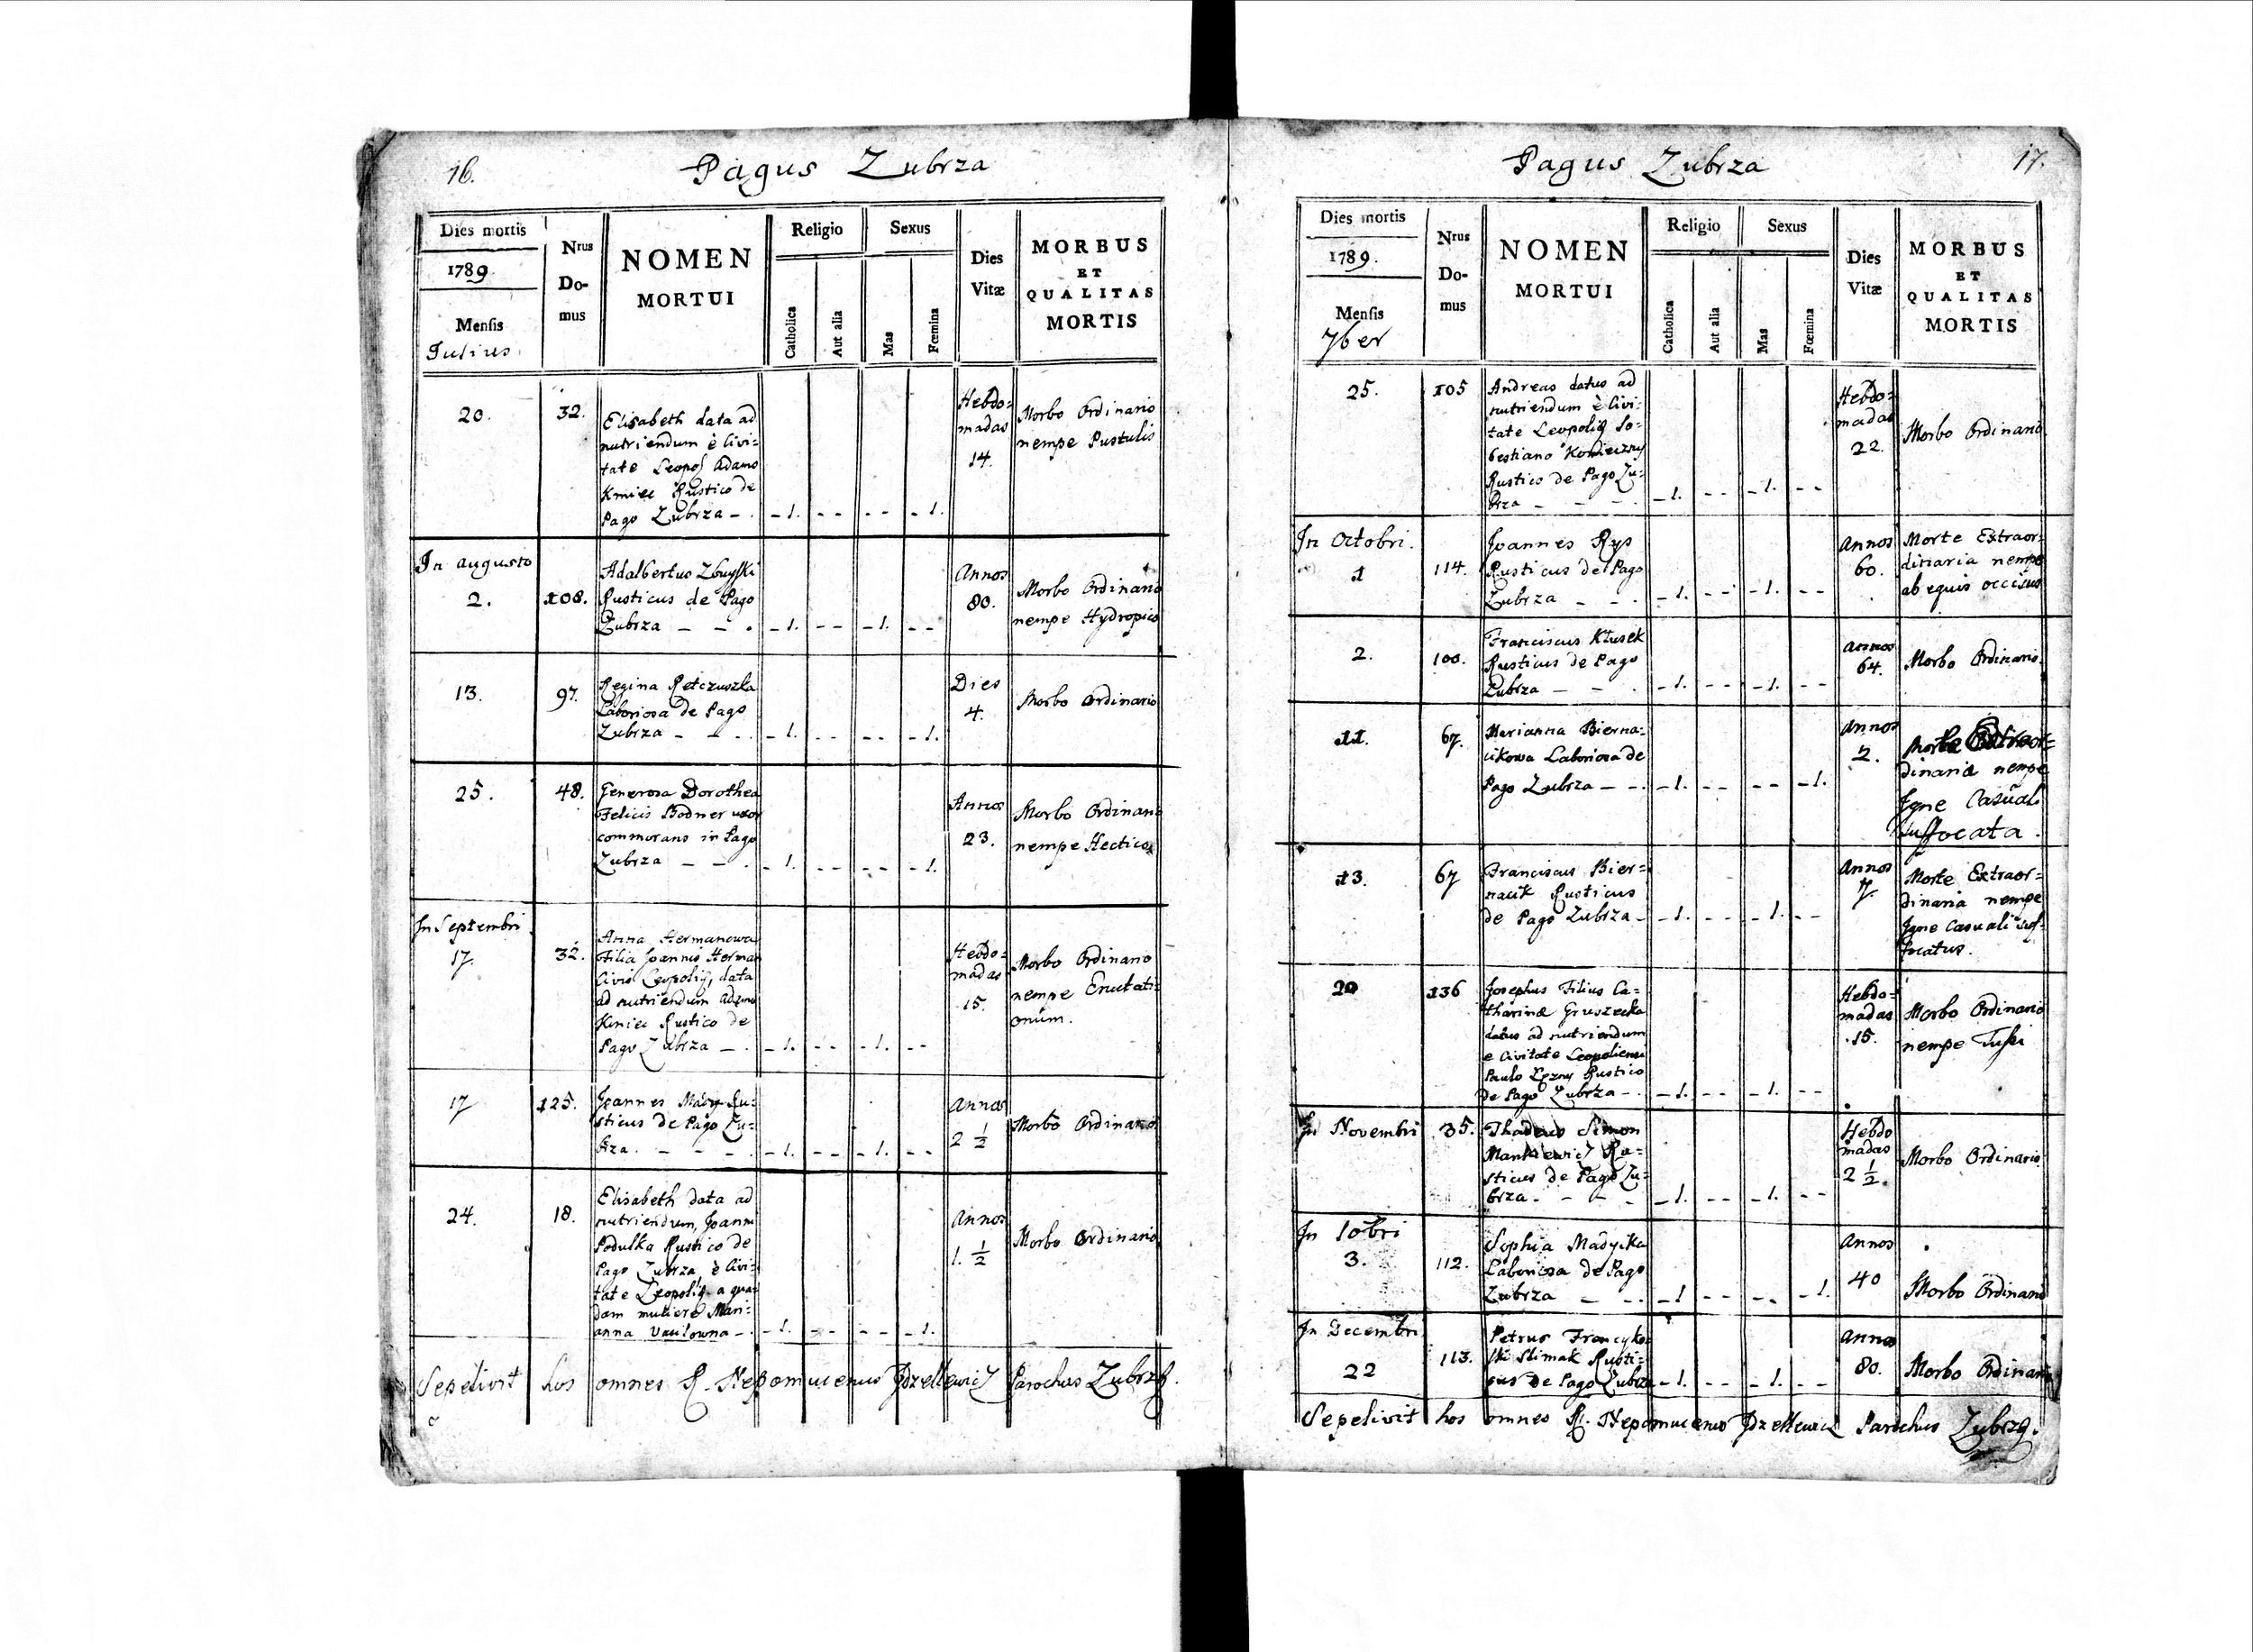 16.
Pagus Zubrza
Dies mortis
1789.
Mensis
Julius
Nrus
Do-
mus
NOMEN
MORTUI
Religio
Catholica
Aut alia
Sexus
Mas
Fœmina
Dies
Vitæ
MORBUS
ET
QUALITAS
MORTIS
20.
32.
Elisabeth data ad
nutriendum è Civi-
tate Leopol Adamo
Kmiec Rustico de
Pago Zubrza - .
- 1. - - - - - 1.
Hebdo=
madas
14.
Morbo Ordinario
nempe Pustulis
In Augusto
2.
108.
Adalbertus
Rusticus de Pago
Zubrza - - .
- 1. - - - 1. - -
Annos
80.
Morbo Ordinario
nempe Hydropico
13.
97.
Regina
Laboriosa de Pago
Zubrza - - .
- 1. - - - - - 1.
Dies
4.
Morbo Ordinario
25.
48.
Generosa Dorothea
Felicis Bodner uxor
commorans in Pago
Zubrza - - .
- 1. - - - - - 1.
Annos
23.
Morbo Ordinario
nempe Hectica
In Septembri
17.
32.
Anna Hermanowa
Filia Joannis Herman
Civis Leopolis, data
ad nutriendum Adamo
Kmiec Rustico de
Pago Zubrza - .
- 1. - - - 1. - -
Hebdo=
madas
15.
Morbo Ordinario
nempe Eructati-
onum.
17
125.
Joannes Ru-
sticus de Pago Zu-
brza. - - - .
- 1. - - - 1. - -
Annos
2 1/2
Morbo Ordinario
24.
18.
Elisabeth data ad
nutriendum, Joanni
Podulka Rustico de
Pago Zubrza, è Civi-
tate Leopolis a qua-
dam muliere Mari-
anna - .
- 1. - - - - - 1.
Annos
1. 1/2
Morbo Ordinario
Sepelivit hos omnes R. Nepomucenus Parochus Zubrzę.
17.
Pagus Zubrza
Dies mortis
1789.
Mensis
7ber
Nrus
Do-
mus
NOMEN
MORTUI
Religio
Catholica
Aut alia
Sexus
Mas
Fœmina
Dies
Vitæ
MORBUS
ET
QUALITAS
MORTIS
25.
105
Andreas datus ad
nutriendum è Civi-
tate Leopolis Se-
bestiano Konieczny
Rustico de Pago Zu-
brza - - .
- 1. - - - 1. - -
Hebdo=
madas
22.
Morbo Ordinario.
In Octobri.
1
114.
Joannes Rys
Rusticus de Pago
Zubrza - - .
- 1. - - - 1. - -
Annos
60.
Morte Extraor-
dinaria nempe
ab equis occisus
2.
100.
Franciscus Kłusek
Rusticus de Pago
Zubrza - - .
- 1. - - - 1. - -
Annos
64.
Morbo Ordinario.
11.
67.
Marianna Bierna-
cikowa Laboriosa de
Pago Zubrza - - .
- 1. - - - - - 1.
Annos
2.
Morte Extraor=
dinaria nempe
Igne Casuali
suffocata.
13.
67
Franciscus Bier=
nacik Rusticus
de Pago Zubrza -
- 1. - - - 1. - -
Annos
7.
Morte Extraor=
dinaria nempe
Igne Casuali suf-
focatus.
20
136
Josephus Filius Ca=
tharinæ Gruszecka
datus ad nutriendum
e Civitate Leopoliensi
Paulo Rustico
de Pago Zubrza - .
- 1. - - - 1. - -
Hebdo=
madas
15.
Morbo Ordinario
nempe Tussi
In Novembri
35.
Thadeus Simon
Mankiewicz Ru-
sticus de Pago Zu-
brza. - - -
- 1. - - - 1. - -
Hebdo
madas
2 1/2.
Morbo Ordinario
In 10bri
3.
112.
Sophia
Laboriosa de Pago
Zubrza - - .
- 1 - - - - - 1.
Annos
40
Morbo Ordinario
In Decembri
22
113.
Petrus
Slimak Rusti-
cus de Pago Zubrza
- 1. - - - 1. - -
Annos
80.
Morbo Ordinario
Sepelivit hos omnes R. Nepomucenus Parochus Zubrzę.